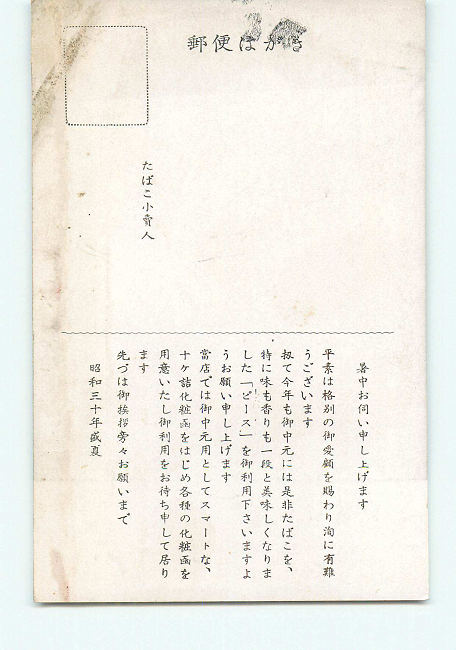 郵便はがき
たばこ小賣人
暑中お伺い申し上げます
平素は格別の御愛顧を賜わり洵に有難
うございます
扨て今年も御中元には是非たばこを、
特に味も香りも一段と美味しくなりま
した「ピース」を御利用下さいますよ
うお願い申し上げます
當店では御中元用としてスマートな、
十ケ詰化粧函をはじめ各種の化粧函を
用意いたし御利用をお待ち申して居り
ます
先づは御挨拶旁々お願いまで
昭和三十年盛夏